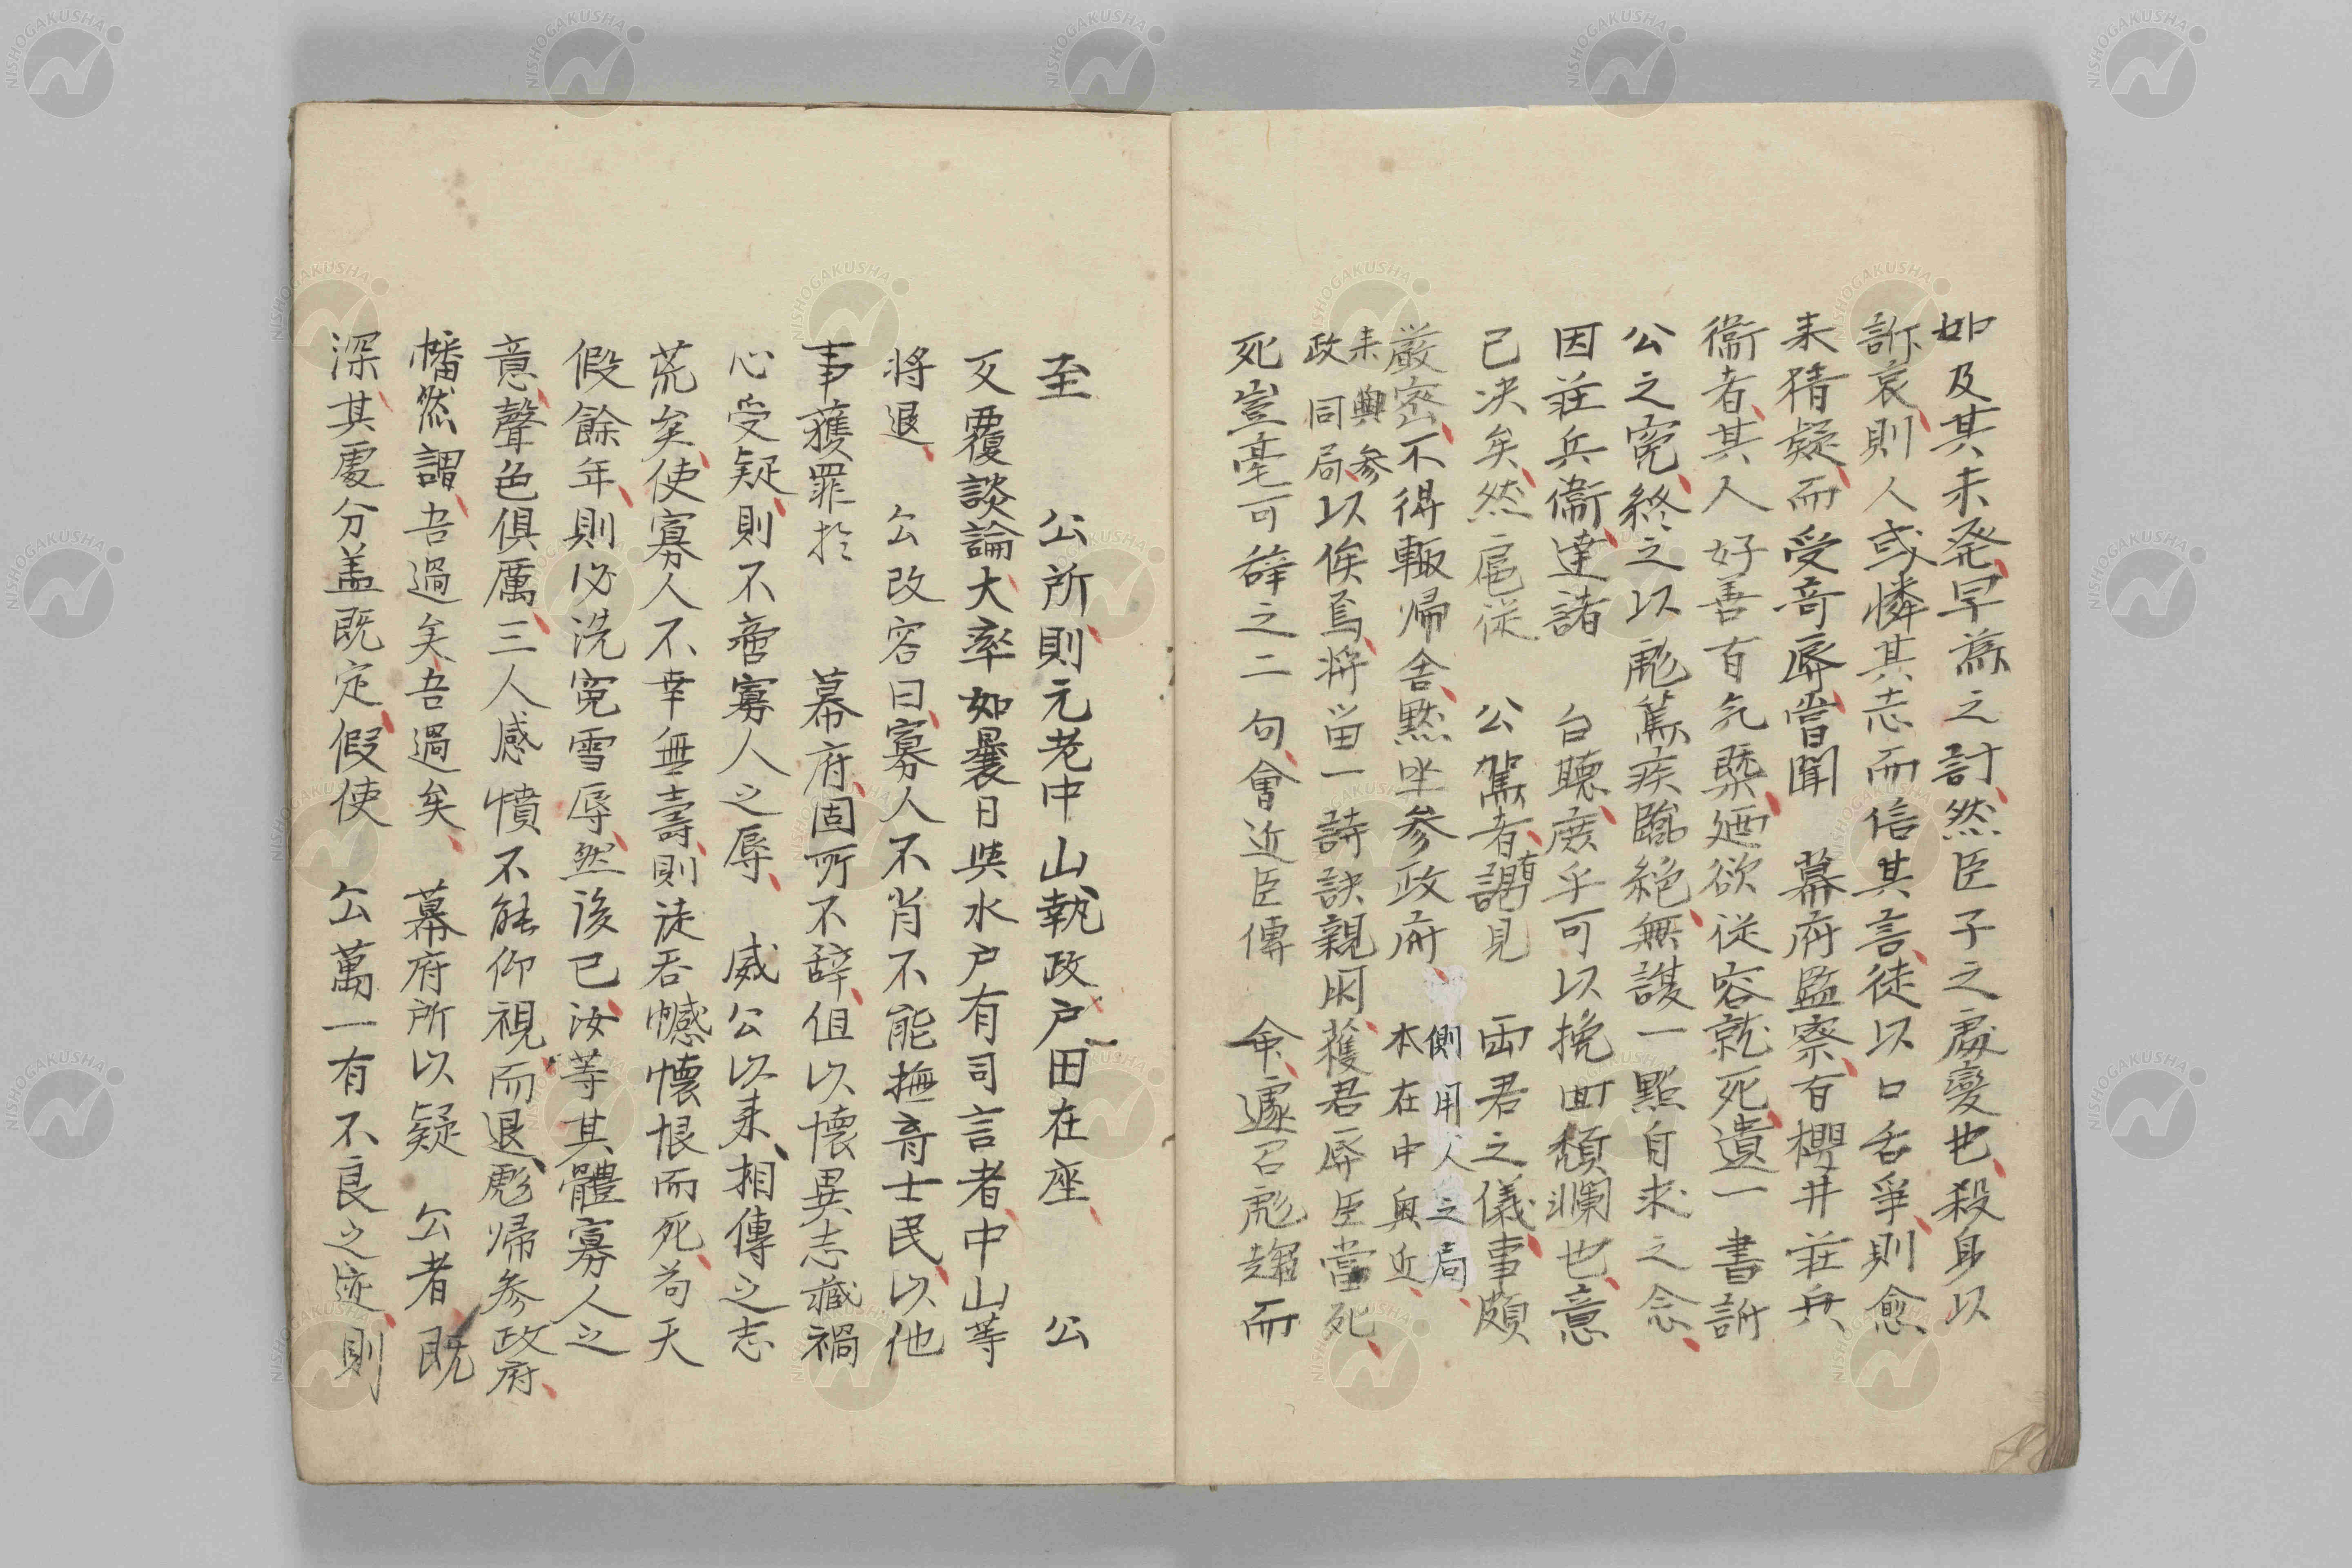 如及其未発早為之計然臣子之處変也殺身以
訴哀則人或憐其志而信其言徒以口舌爭則愈
来猜疑而受竒辱嘗聞　幕府監察有櫻井荘兵
衞者其人好善有気槩廼欲従容就死遺一書訴
公之寃終之以彪篤疾臨絶無謀一點自求之念
因荘兵衞達諸　台聴庻乎可以挽回頽瀾也意
已决矣然扈従　公駕者謂見　両君之儀事頗
厳密不得輙帰舎黙坐参政府側用人之局本在中奥近
来與参政同局以俟焉将畄一詩訣親朋蓋君辱臣當死
死豈毫可辞之二句會近臣傳　命遽召彪趨而
至　公所則元老中山執政戸田在座　公
反覆談論大率如曩日與水戸有司言者中山等
将退　公改容曰寡人不肖不能撫育士民以他
事獲罪於　幕府固所不辞但以懐異志蔵禍
心受疑則不啻寡人之辱　威公以来相傳之志
荒矣使寡人不幸無壽則徒呑憾懐恨而死苟天
假餘年則必洗寃雪辱然後已汝等其體寡人之
意聲色俱厲三人感憤不能仰視而退彪帰参政府
幡然謂吾過矣吾過矣　幕府所以疑　公者既
深其處分盖既定假使　公萬一有不良之迹則
NISHOGAKUSHA